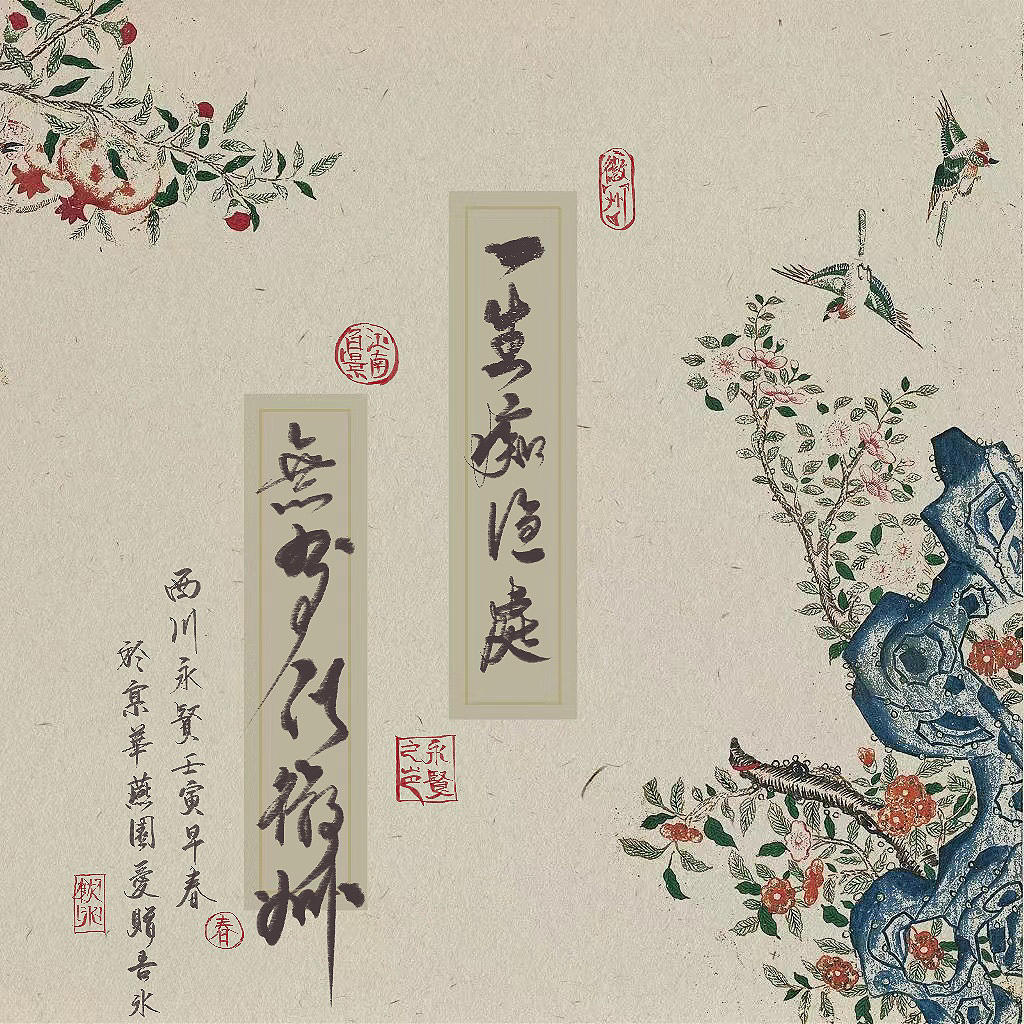 徽州
一生痴絕處
江南百景
無夢到徽州
永賢之印
西川永賢壬寅早春
春
於京華燕園愛贈吾氷